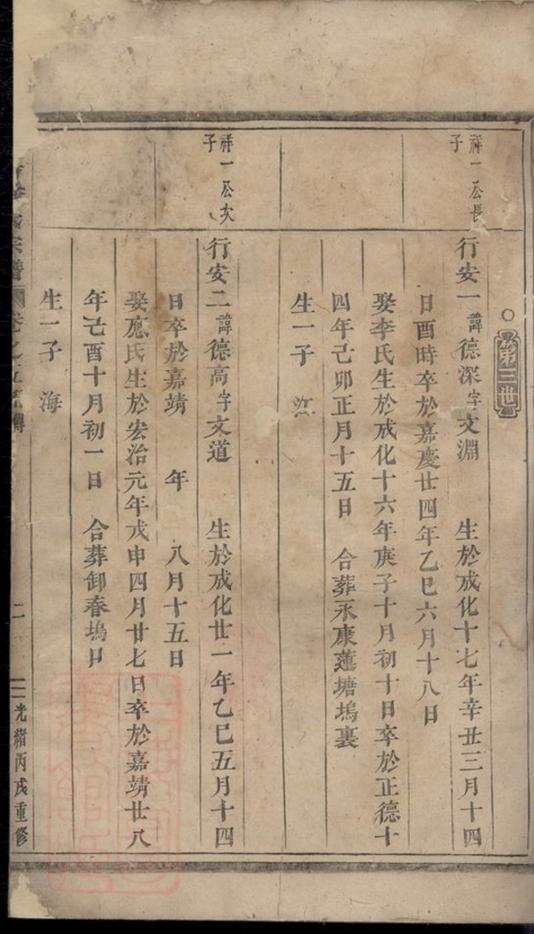 第三世
祥一公長
子
行安一諱德深字文淵 生於成化十七年辛丑三月十四
日酉時卒於嘉慶廿四年乙巳六月十八日
娶李氏生於成化十六年庚子十月初十日卒於正德十
四年己卯正月十五日 合葬永康蓮塘塢裏
生一子 江
祥一公次
子
行安二諱德高字文道 生於成化廿一年乙巳五月十四
日卒於嘉靖 年 八月十五日
娶應氏生於宏治元年戊申四月廿七日卒於嘉靖廿八
年己酉十月初一日 合葬卸春塢口
生一子 海
宗譜 卷之 二 光緒丙戌重修